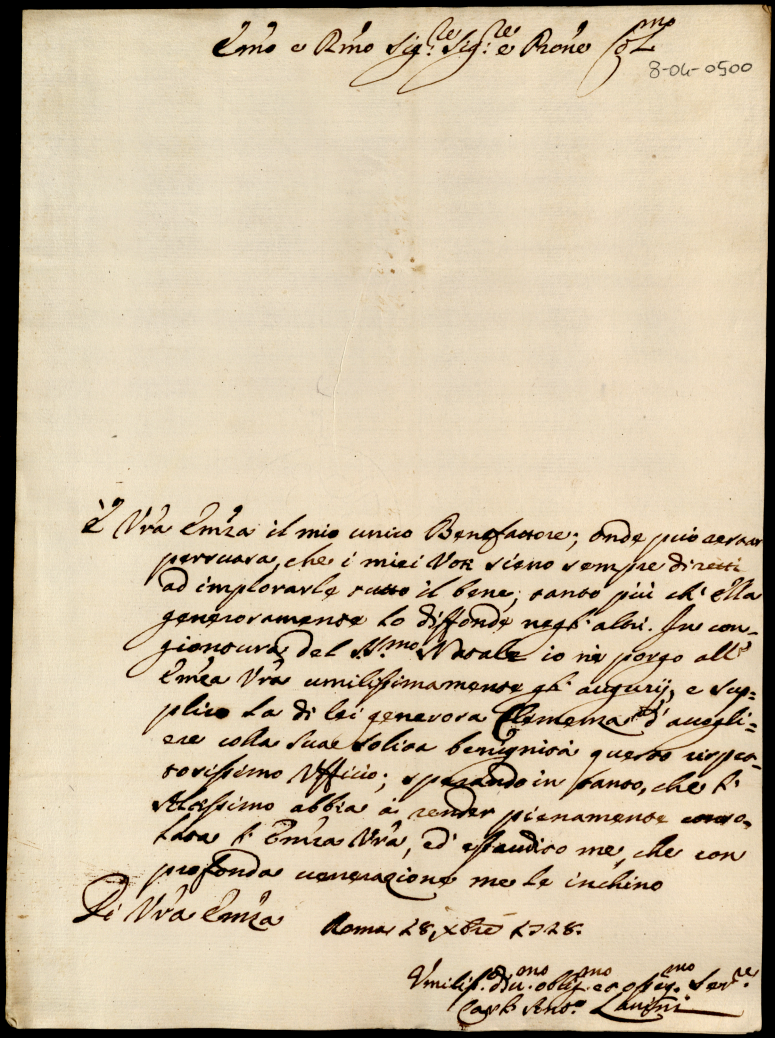 Em̃o e Rm̃o Sig.re Sig.re e Prõne Col.mo
8-04-0500
È Vr̃a Em̃za il mio unico Benefattore; onde può esser
persuasa, che i miei Voti sieno sempre diretti
ad implorarle tutto il bene, tanto più ch' Ella
generosamente lo diffonde negl' altri. In con=
giontura del SS.mo Natale io ne porgo all'
Em̃za Vr̃a umilissimamente gl' augurij, e sup=
plico la di lei generosa Clemenza d' accogli=
ere colla sua solita benignità questo rispet=
tosissimo Ufficio; sperando in tanto, che l'
Altissimo abbia à render pienamente conso=
lata l' Em̃za Vr̃a, ed esaudito me, che con
profonda venerazione me le inchino
Di Vr̃a Em̃za Roma 18. Xbre 1728.
Umiliss.o div.mo oblig.mo ed osseq.mo Ser.re
Ant.o Lanzini